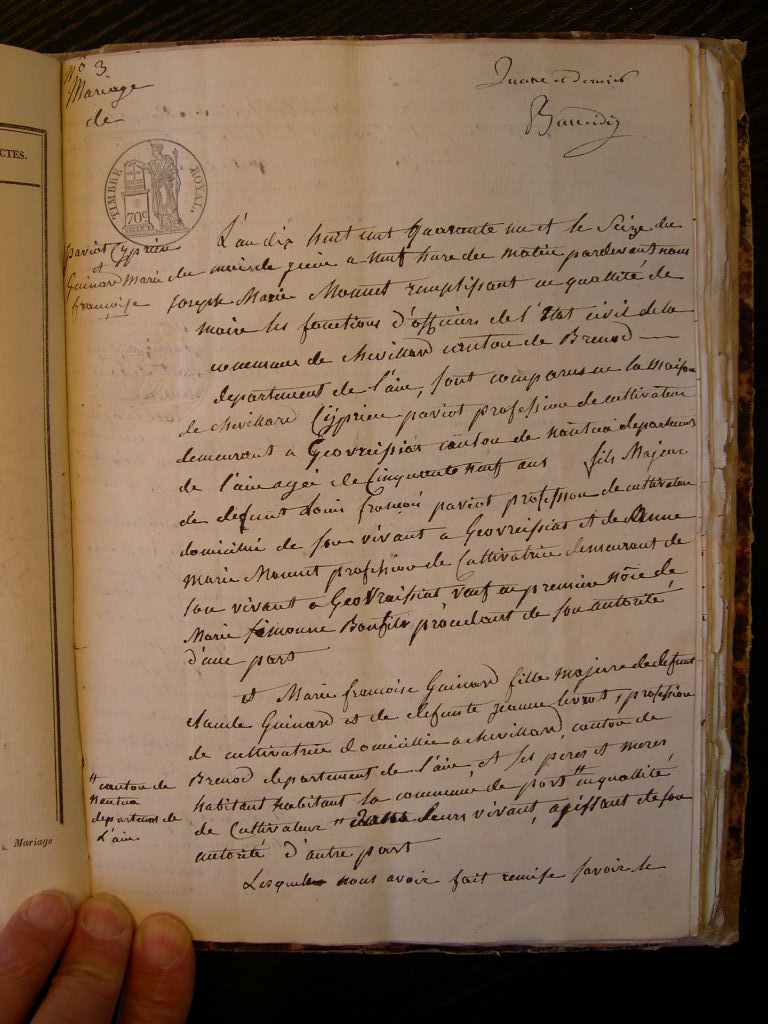 CTES.
Mariage
nº 3
Mariage
de
TIMBRE ROYAL.
70c
paviot Cyprien
et
Guinard Marie
françoise
L'an dix huit cent quarante un et le Seize du
mois de a neuf heure du matin pardevant nous
Joseph Marie Monnet remplissant en quallité de
maire les fonctions d'officiers de l'Etat civil de la
commune de chevillard canton de Brenod
departement de l'ain, sont comparus en la maison
de chevillard Cyprien paviot profession de cultivateur
demeurant a Geovreissiat canton de nantua departement
de l'ain agée de Cinquante neuf ans fils Majeur
de defunt Louis françois paviot profession de cultivateur
domicilié de son vivant a Geovreissiat et de Anne
Marie Monnet profession de Cultivatrice demeurant de
son vivant a Geovraissiat veuf en première nôce de
Marie Simonne Bonfils procedant de son autorité
d'une part
et Marie françoise Guinard fille majeure de defunt
claude Guinard et de defunte jeanne levrat, profession
de cultivatrice domiciliée a chevillard, canton de
Brenod departement de l'ain et ses peres et meres
habitant habitant la commune de port " en quallité
de Cultivateur " leurs vivant, agissant de son
autorité d'autre part
" canton de
Nantua
departement de
L'ain
Lesquels nous avoir fait remise savoir le